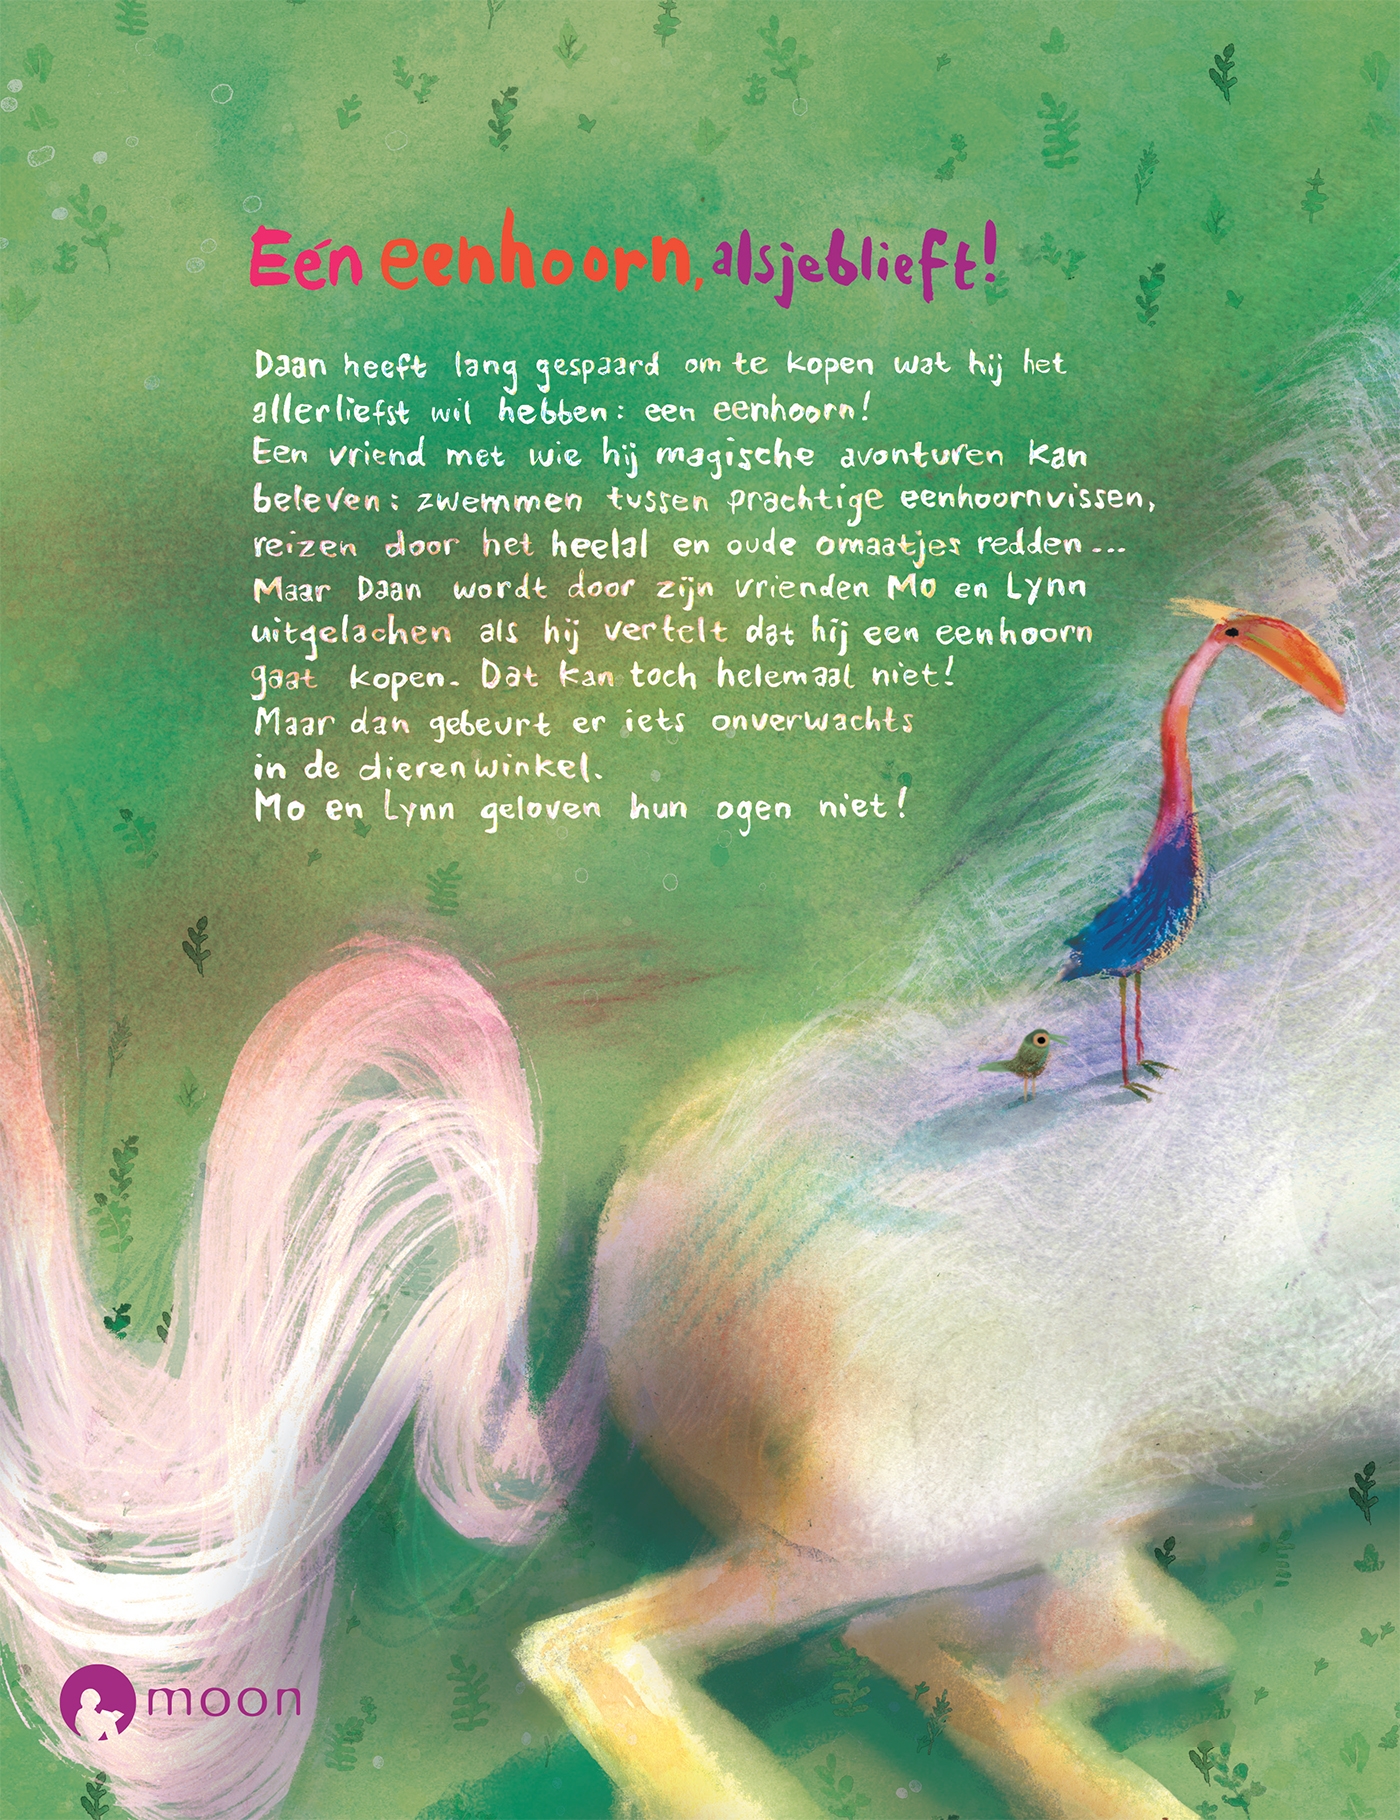 Eén eenhoorn, alsjeblieft!
Daan heeft lang gespaard om te kopen wat hij het
allerliefst wil hebben: een eenhoorn!
Een vriend met wie hij magische avonturen kan
beleven: zwemmen tussen prachtige eenhoornvissen,
reizen door het heelal en oude omaatjes redden...
Maar Daan wordt door zijn vrienden Mo en Lynn
uitgelachen als hij vertelt dat hij een eenhoorn
gaat kopen. Dat kan toch helemaal niet!
Maar dan gebeurt er iets onverwachts
in de dierenwinkel.
Mo en Lynn geloven hun ogen niet!
moon